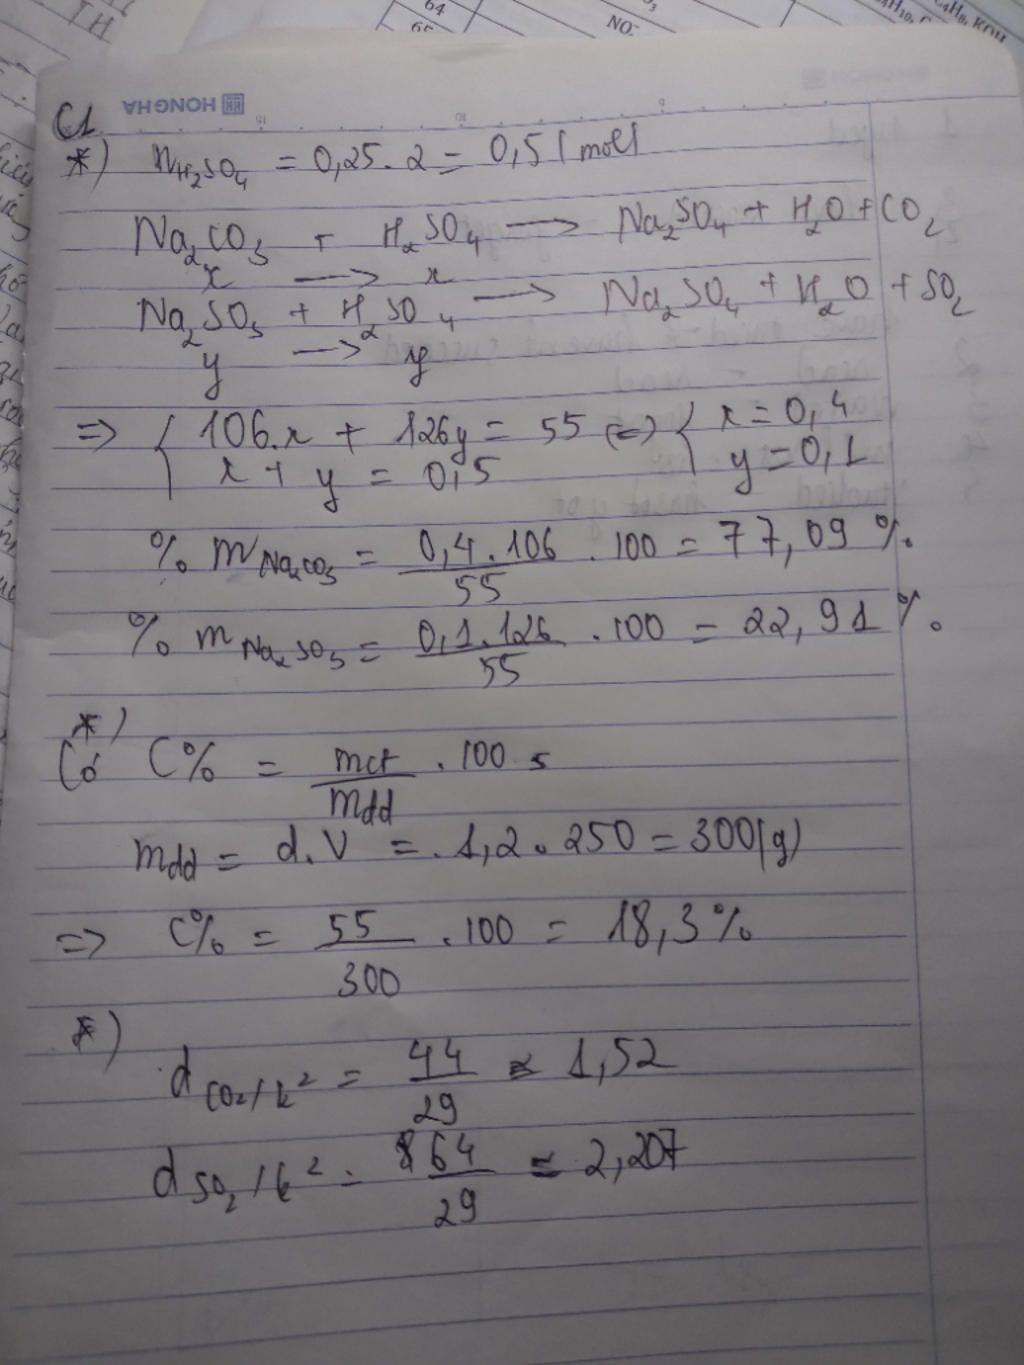 64
65
NO⁻
HONGHA
15
10
5
C1
*) nH₂SO₄ = 0,25 . 2 = 0,5 (mol)
Na₂CO₃ + H₂SO₄ → Na₂SO₄ + H₂O + CO₂
x → x
Na₂SO₃ + H₂SO₄ → Na₂SO₄ + H₂O + SO₂
y → y
=> { 106.x + 126y = 55 <=> { x = 0,4
x + y = 0,5 y = 0,1
% m Na₂CO₃ = 0,4 . 106 / 55 . 100 = 77,09 %.
% m Na₂SO₃ = 0,1 . 126 / 55 . 100 = 22,91 %.
*)
Có C% = mct / mdd . 100
mdd = d.V = . 1,2 . 250 = 300 (g)
=> C% = 55 / 300 . 100 = 18,3 %
*)
d CO₂/k² = 44 / 29 ≈ 1,52
d SO₂/k² = 64 / 29 = 2,207